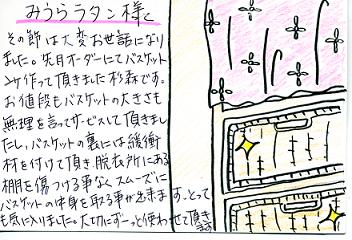 みうらラタン様
その節は大変お世話になり
ました。先月オーダーにてバスケット
2ケ作って頂きました杉森です。
お値段もバスケットの大きさも
無理を言ってサービスして頂きまし
たし、バスケットの裏には緩衝
材を付けて頂き、脱衣所にある
棚を傷つける事なくスムーズに
バスケットの中身を取る事が出来ます。とって
も気に入りました。大切にずーっと使わせて頂き